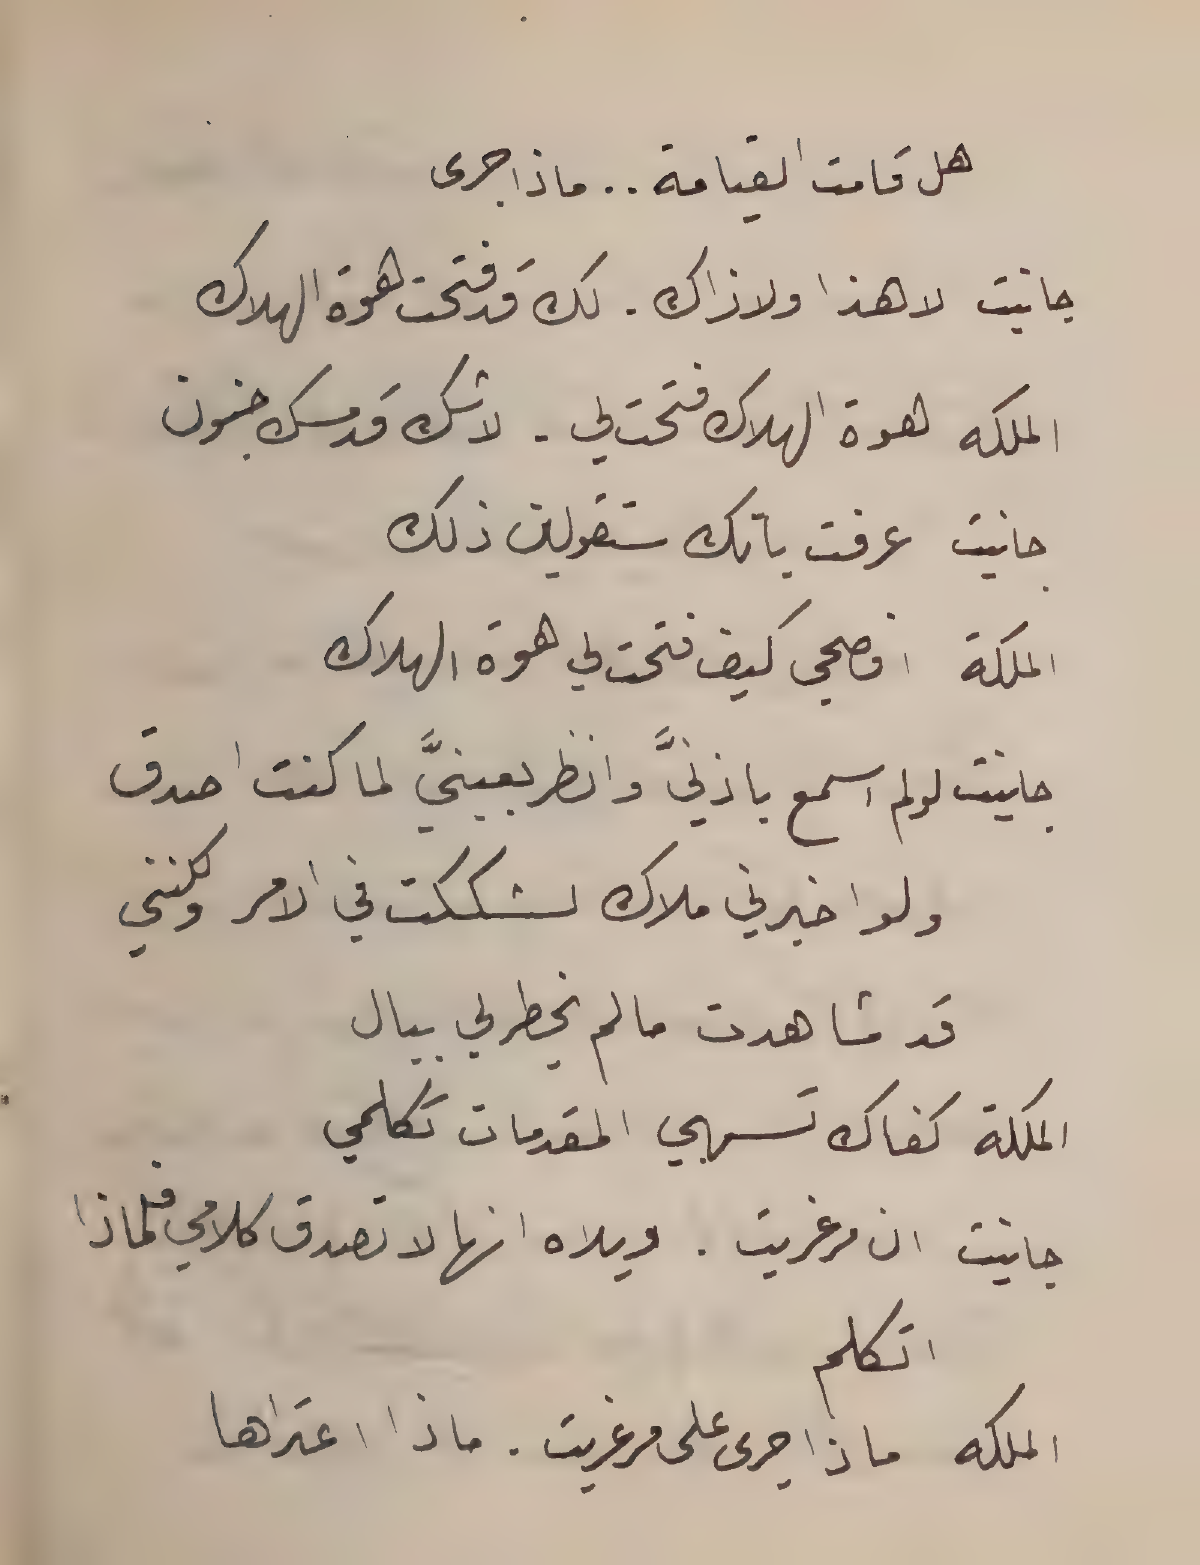 هل قامت القيامة .. ماذا جرى
جانيت لا هذا ولا ذاك . لك قد فتحت هوة الهلاك
الملكه هوة الهلاك فتحت لي . لا شك قد مسك جنون
جانيت عرفت بانك ستقولين ذلك
الملكة افصحي كيف فتحت لي هوة الهلاك
جانيت لولم اسمع باذنيَّ وانظر بعينيَّ لما كنت اصدق
ولو اخبرني ملاك لشككت في الامر ولكنني
قد شاهدت مالم يخطر لي ببال
الملكة كفاك تسهبي المقدمات تكلمي
جانيت ان مرغريت . ويلاه انها لا تصدق كلامي فلماذا
اتكلم
الملكه ماذا جرى على مرغريت . ماذا اعتراها